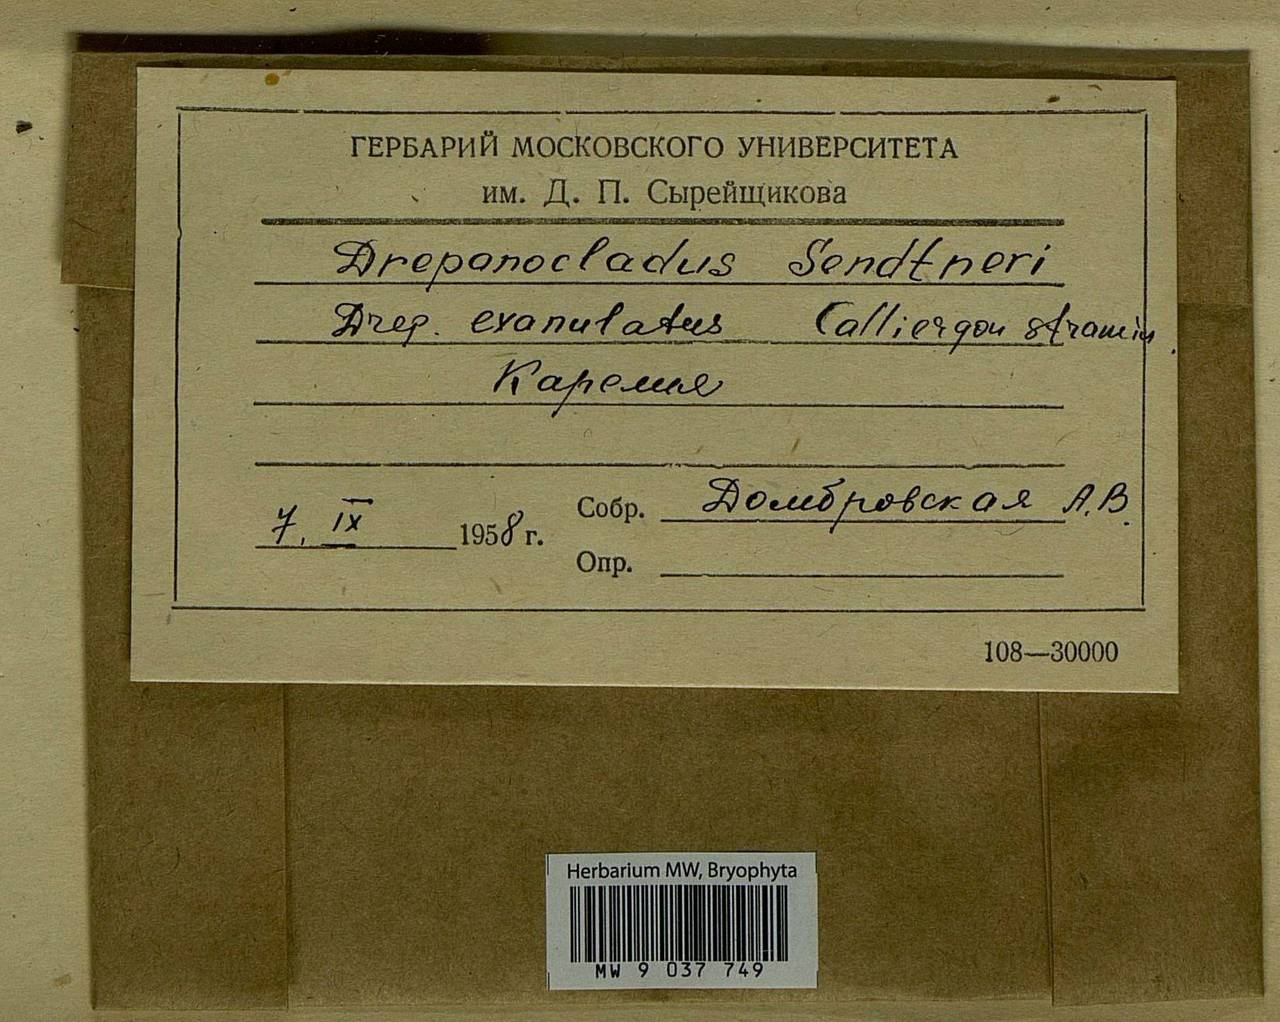 ГЕРБАРИЙ МОСКОВСКОГО УНИВЕРСИТЕТА
им. Д. П. Сырейщикова
Drepanocladus Sendtneri
Drep. exanulatus Calliergon stramin.
Карелия
7. IX 1958 г.
Собр. Домбровская А.В.
Опр.
108—30000
Herbarium MW, Bryophyta
MW 9 037 749